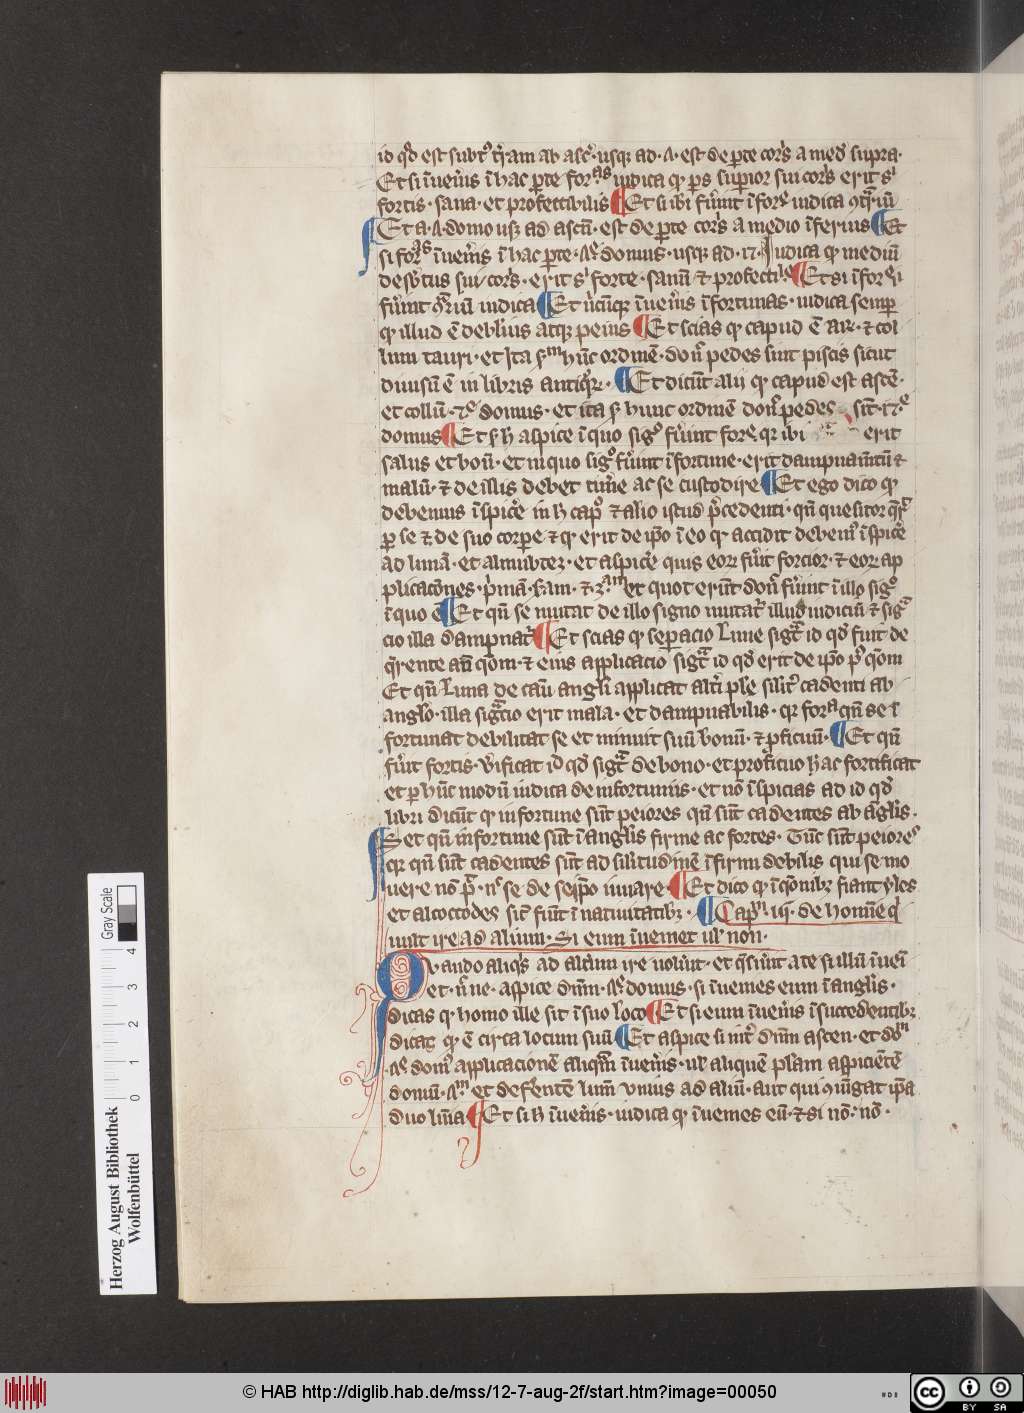 id qd̓ est subt᷒ t̓ram ab asc̄. usq; ad .4. est de ꝑte cor̄s a med̓ supra.
Et si īuen̓is ī hac ꝑte for.ᵃˢ iudica qꝫ ꝑs suꝑior sui cor̄s erit sⁱ
fortis. sana. et profectibilis ¶ Et si ibi fu̓int īfor̄. iudica
Et a .4. domo usq; ad ascn̄. est de ꝑte cor̄s a medio īferius ¶ Et
si for.ᵃˢ īuen̓is ī hac ꝑte. domus. usq; ad Iudica qꝫ mediū
sui cor̄s. erit sⁱ forte. sanū ⁊ profectiˡᵉ. ¶ Et si īfor̄
fu̓int iudica ¶ Et īuen̓is īfortunas. iudica semꝑ
qꝫ illud ē debilius atq; peius ¶ Et scias qꝫ capud ē ⁊ col
lum tauri. et Ita hūc ordinē. don̄ pedes sint piscis sicut
diuisū ē in libris antiq̊ꝝ. ¶ Et dicūt alii qꝫ capud est ascn̄.
et collū. domus. et ita hunc ordinē don̄ pedes sīt .12.ᵉ
domus ¶ Et aspice ī quo sig᷒ fu̓int for̄. ibi erit
salus et bonū. et in quo sig᷒ fu̓int īfortune. erit dampnam̄tū ⁊
malū. ⁊ de illis debet tim̄e ac se custodire ¶ Et ego dico qꝫ
debemus īspic̓e in h cap᷒ ⁊ alio istud p̄cedenti. qn̄ quesitor
ꝑ se ⁊ de suo corꝑe ⁊ qꝫ erit de ip̄o ī eo qꝫ accidit debem᷒ īspic̓e
ad lunā. et almubtez. et aspic̓e quis eoꝝ fu̓it forcior. ⁊ eoꝝ ap
plicac̄ones. p̓mā et quot erūt don̄ fu̓int ī illo sig᷒
ī quo ē ¶ Et qn̄ se mutat de illo signo mutat᷒ illud iudiciū ⁊ sigᵃ
cio illa dampnat᷒ ¶ Et scias qꝫ seꝑacio Lune sigᵃt id qd̓ fuit de
q̄rente an̄ q̄om. ⁊ eius applicacio sigᵃt id qd̓ erit de ip̄o p᷒ q̄om
Et qn̄ Luna de cad̄ angl̓i applicat alt̓i pl̄e sil̓it᷒ cadenti ab
angl̓o. illa sigᵃcio erit mala. et dampnabilis. qꝛ forᵃ qn̄ se ī
fortunat debilitat se et minuit suū bonū. ⁊ ꝓficuū. ¶ Et qn̄
fu̓it fortis. v̓ificat id qd̓ sigᵃt de bono. et proficuo hac fortificat
et ꝑ hūc modū iudica de infortuniis. et nō īspicias ad id qd̓
libri dicūt qꝫ infortune sūt peiores qn̄ sūt cadentes ab angl̓is.
Set qn̄ infortune sūt ī angl̓is firme ac fortes. Tūc sūt peiores
qꝛ qn̄ sūt cadentes sūt ad sil̓itudinē īfirmi debilis qui se mo
uere nō pᵃ. nᶜ se de seip̄o iuuare. ¶ Et dico qꝫ ī q̄onibꝫ fiant yles
et alcoccodes sic̄ fiūt ī natiuitatibꝫ. ¶ Capᵐ. iij. de homine q̄
uult ire ad aliū. Si eum īueniet ul̓ non.
Quando aliq̄s ad alium ire uolu̓it. et q̄siu̓it a te si illū īuen̄i
et. ūl ne. aspice dn̄m. domus. si īuen̓ies eum ī angl̓is.
dicas qꝫ homo ille sit ī suo loco ¶ Et si eum īuen̓is ī succedentibꝫ
dicatꝫ qꝫ ē circa locum suū ¶ Et aspice si int᷒ dn̄m ascen. et dn̄ᵐ
dom᷒ applicacionē aliqᵃm īuen̓is. ul̓ aliquē pl̄am aspiciētē
domū. et defentē lum̄ vnius ad aliū. aut qui ꝯiūgat ip̄a
duo lum̄a ¶ Et si h īuen̓is. iudica qꝫ īuenies eū. ⁊ si nō. nō.
Gray Scale
0 1 2 3 4
Herzog August Bibliothek
Wolfenbüttel
© HAB http://diglib.hab.de/mss/12-7-aug-2f/start.htm?image=00050
cc BY SA